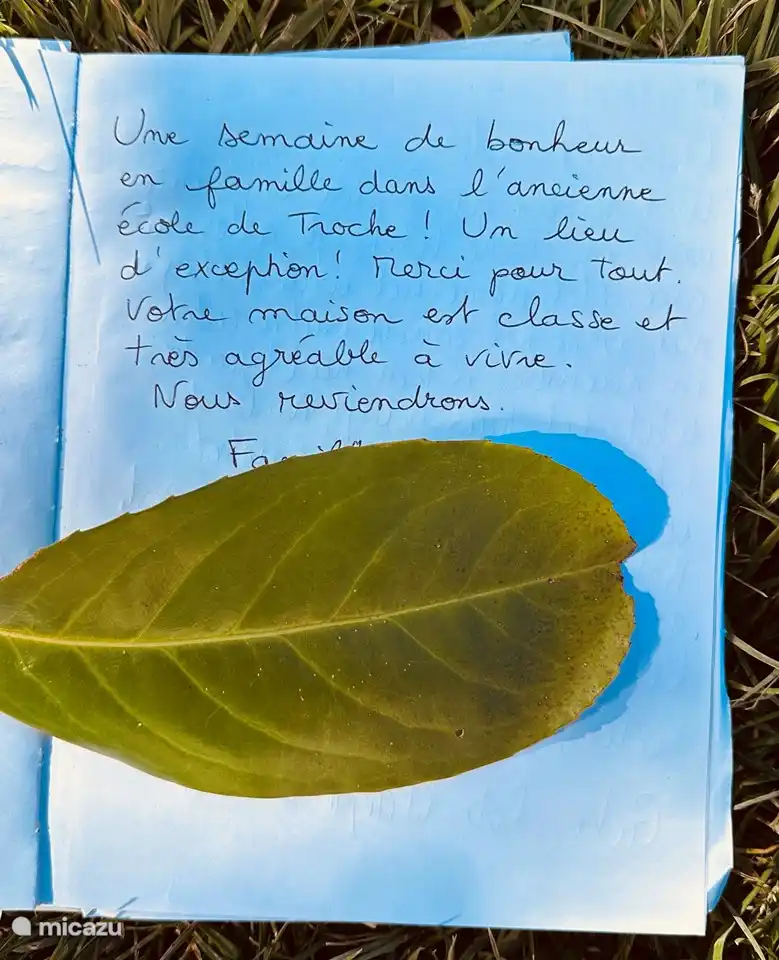 Une semaine de bonheur
en famille dans l'ancienne
école de Troche ! Un lieu
d'exception ! Merci pour tout.
Votre maison est classe et
très agréable à vivre.
Nous reviendrons.
micazu